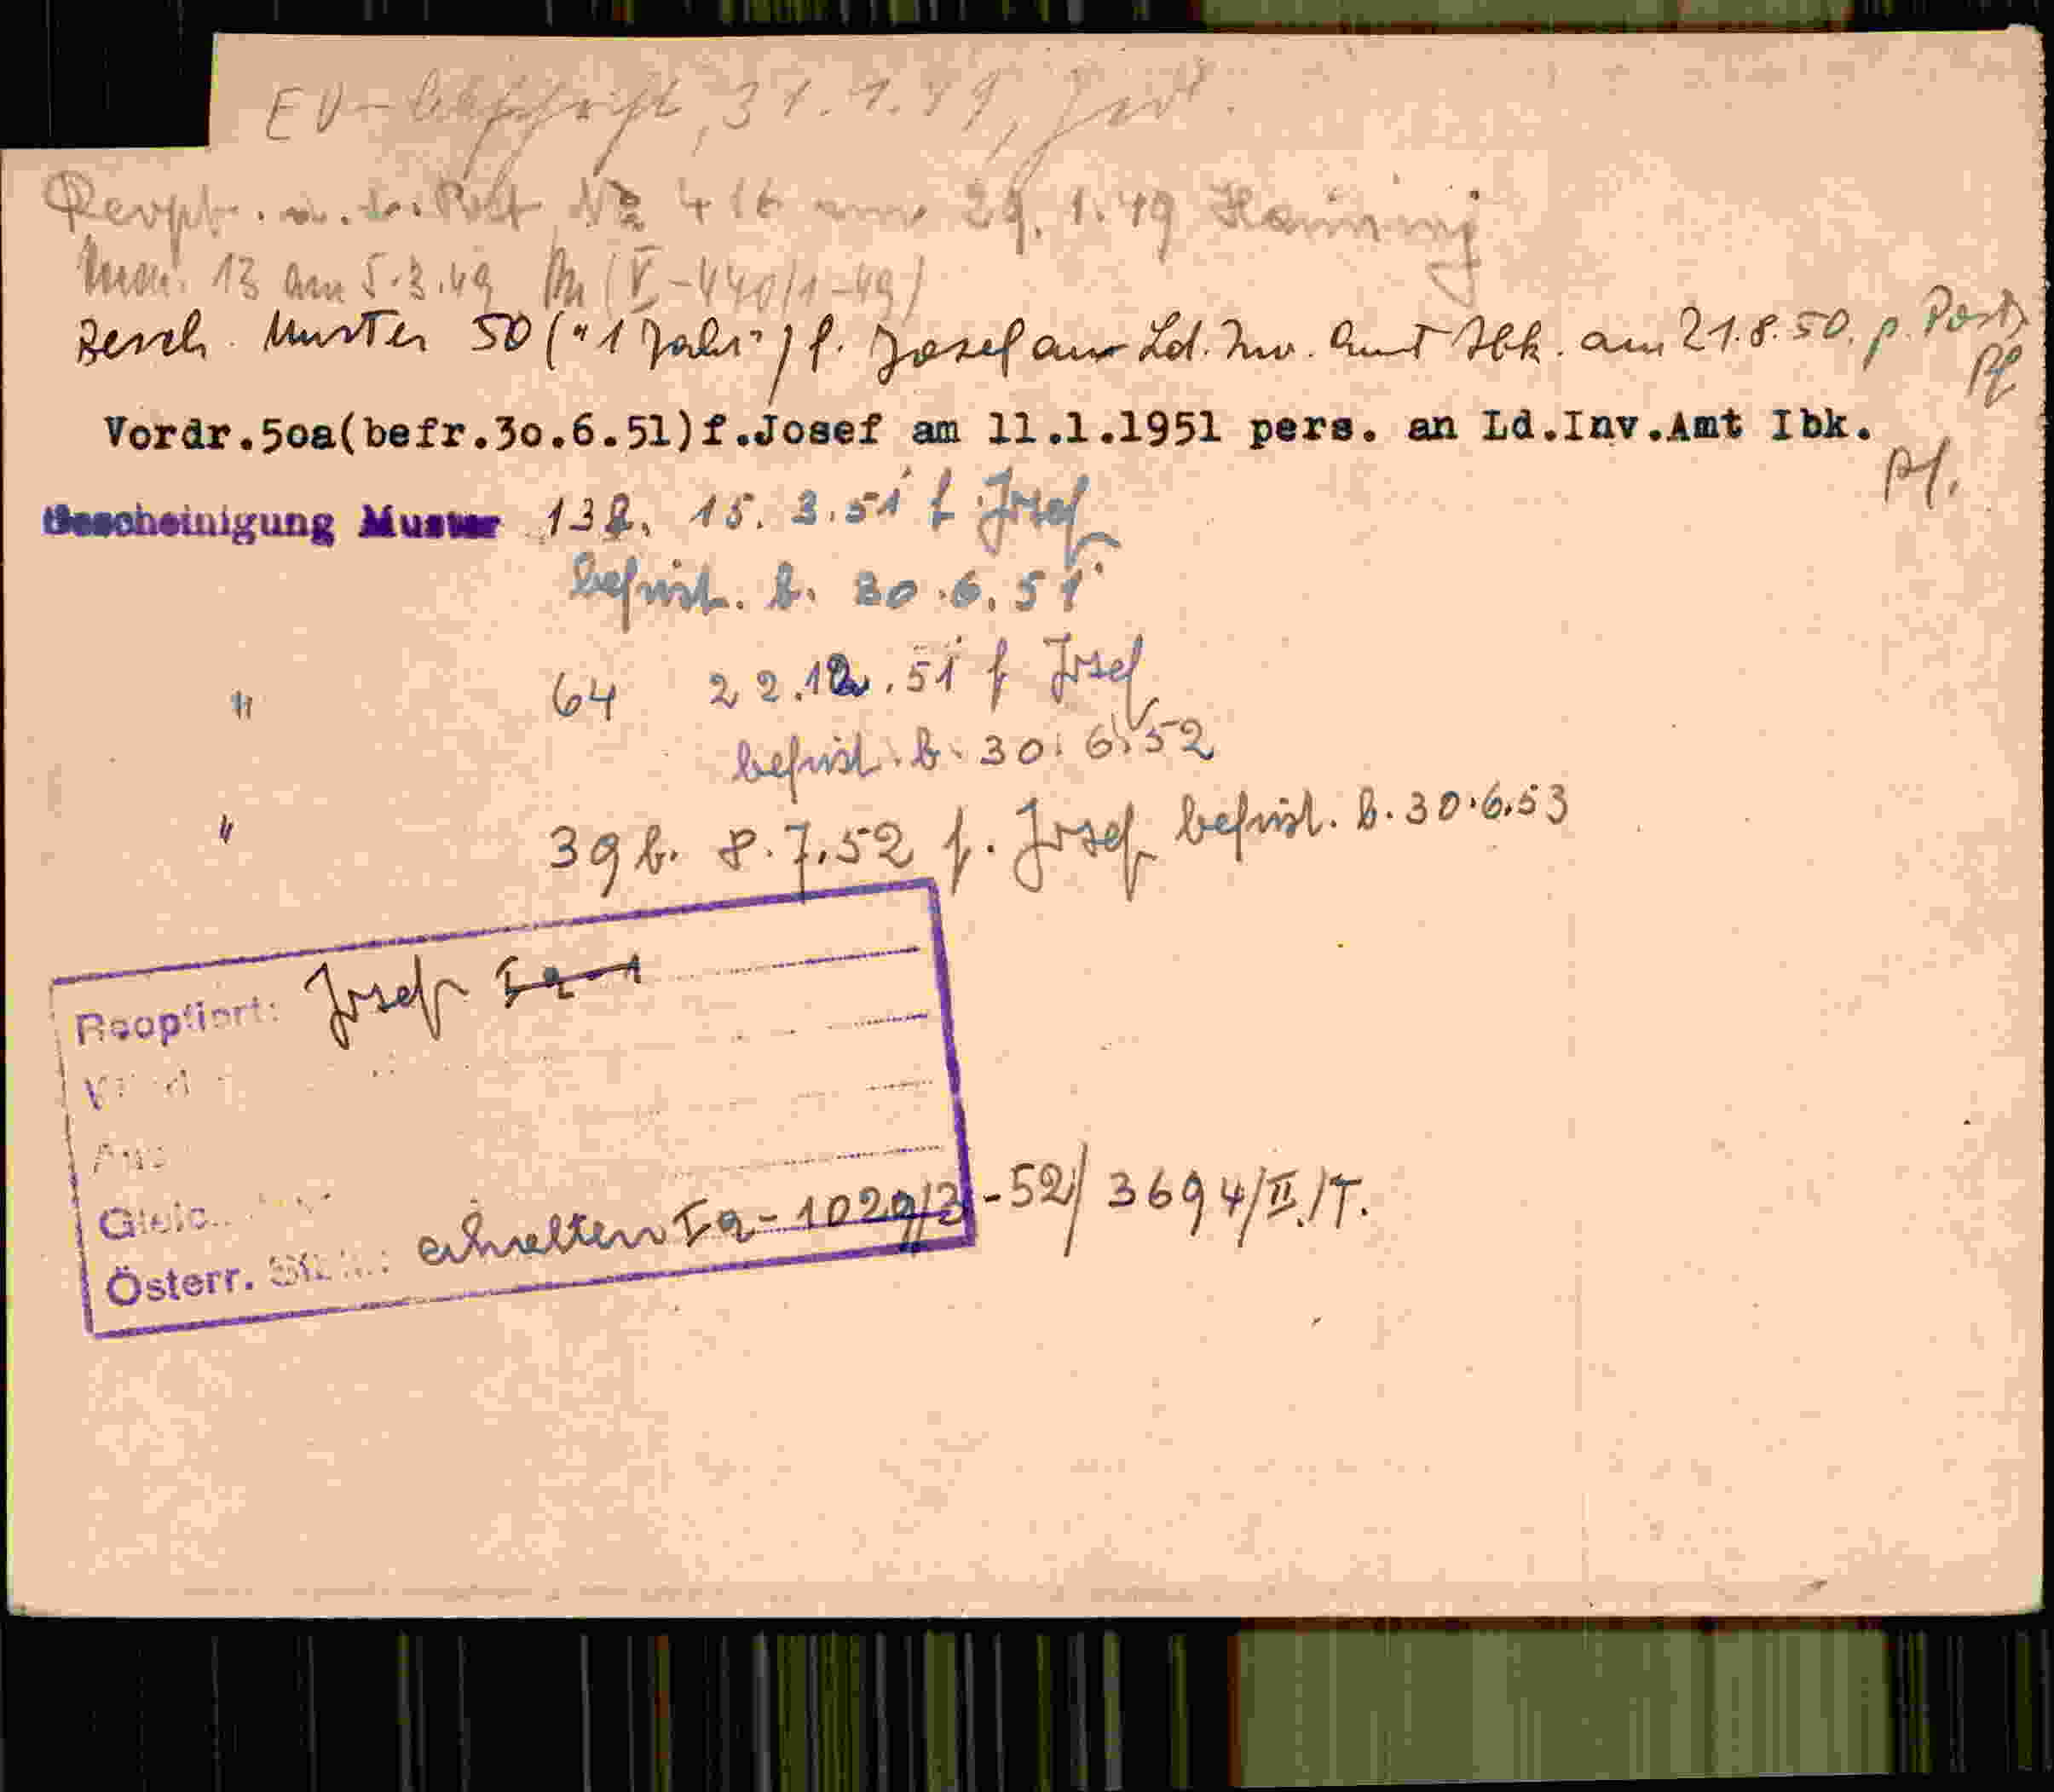 EV-Abschrift, 31.1.49,
Reopt. Nr 416 am 29.1.49 Haiming
Mu. 13 am 5.3.49 (V-440/1-49)
Besch. Muster 50 ("1 Jahr") f. Josef an Ld. Inv. Amt Ibk. am 21.8.50. p. Post
Pf
Vordr.50a(befr.30.6.51)f.Josef am 11.1.1951 pers. an Ld.Inv.Amt Ibk.
Pf.
Bescheinigung Muster 15.3.51 f Josef
befrist. b. 30.6.51
" 64 22.12.51 f Josef
befrist. b. 30.6.52
" 39 b. 8.7.52 f. Josef befrist. b. 30.6.53
Reoptiert: Josef Ia-1
Österr. erhalten Ia-1029/3-52/ 3694/II./T.